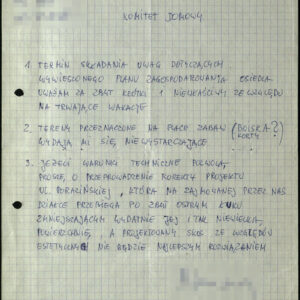 KOMITET DOMOWY
1. TERMIN SKŁADANIA UWAG DOTYCZĄCYCH
WYWIESZONEGO PLANU ZAGOSPODAROWANIA OSIEDLA
UWAŻAM ZA ZBYT KRÓTKI I NIEWŁAŚCIWY ZE WZGLĘDU
NA TRWAJĄCE WAKACJE
2. TERENY PRZEZNACZONE NA PLACE ZABAW (BOISKA?
KORTY
WYDAJĄ MI SIĘ NIEWYSTARCZAJĄCE
3. JEŻELI WARUNKI TECHNICZNE POZWOLĄ
PROSZĘ O PRZEPROWADZENIE KOREKTY PROJEKTU
UL. , KTÓRA NA ZAJMOWANEJ PRZEZ NAS
DZIAŁCE PRZEBIEGA PO ZBYT OSTRYM ŁUKU
ZMNIEJSZAJĄCYM WYDATNIE JEJ I TAK NIEWIELKĄ
POWIERZCHNIĘ, A PROJEKTOWANY SKOS ZE WZGLĘDÓW
ESTETYCZNYCH NIE BĘDZIE NAJLEPSZYM ROZWIĄZANIEM